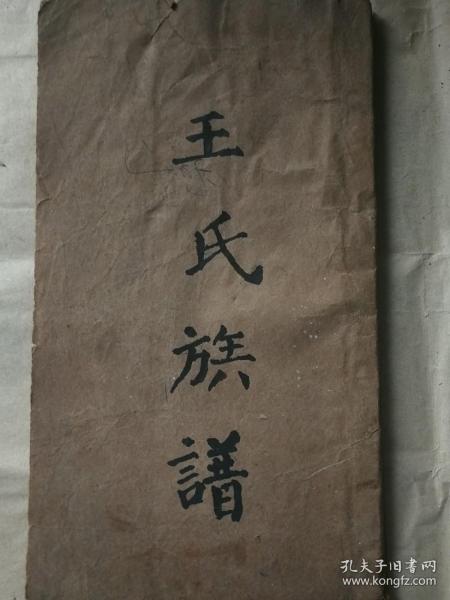 王氏族譜
孔夫子旧书网
www.kongfz.com